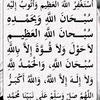 أَسْتَغْفِرُ اللهَ الْعَظِيْمَ وَأَتُوْبُ إِلَيْهِ
سُبْحَانَ اللهِ وَبِحَمْدِهِ
سُبْحَانَ اللهِ الْعَظِيْمِ
لَا حَوْلَ وَلَا قُوَّةَ إِلَّا بِاللهِ
سُبْحَانَ اللهِ، وَالْحَمْدُ لِلهِ
وَلَا إِلَهَ إِلَّا اللهُ، وَاللهُ أَكْبَرُ
اللَّهُمَّ صَلِّ وَسَلِّمْ عَلَى نَبِيِّنَا مُحَمَّدٍ